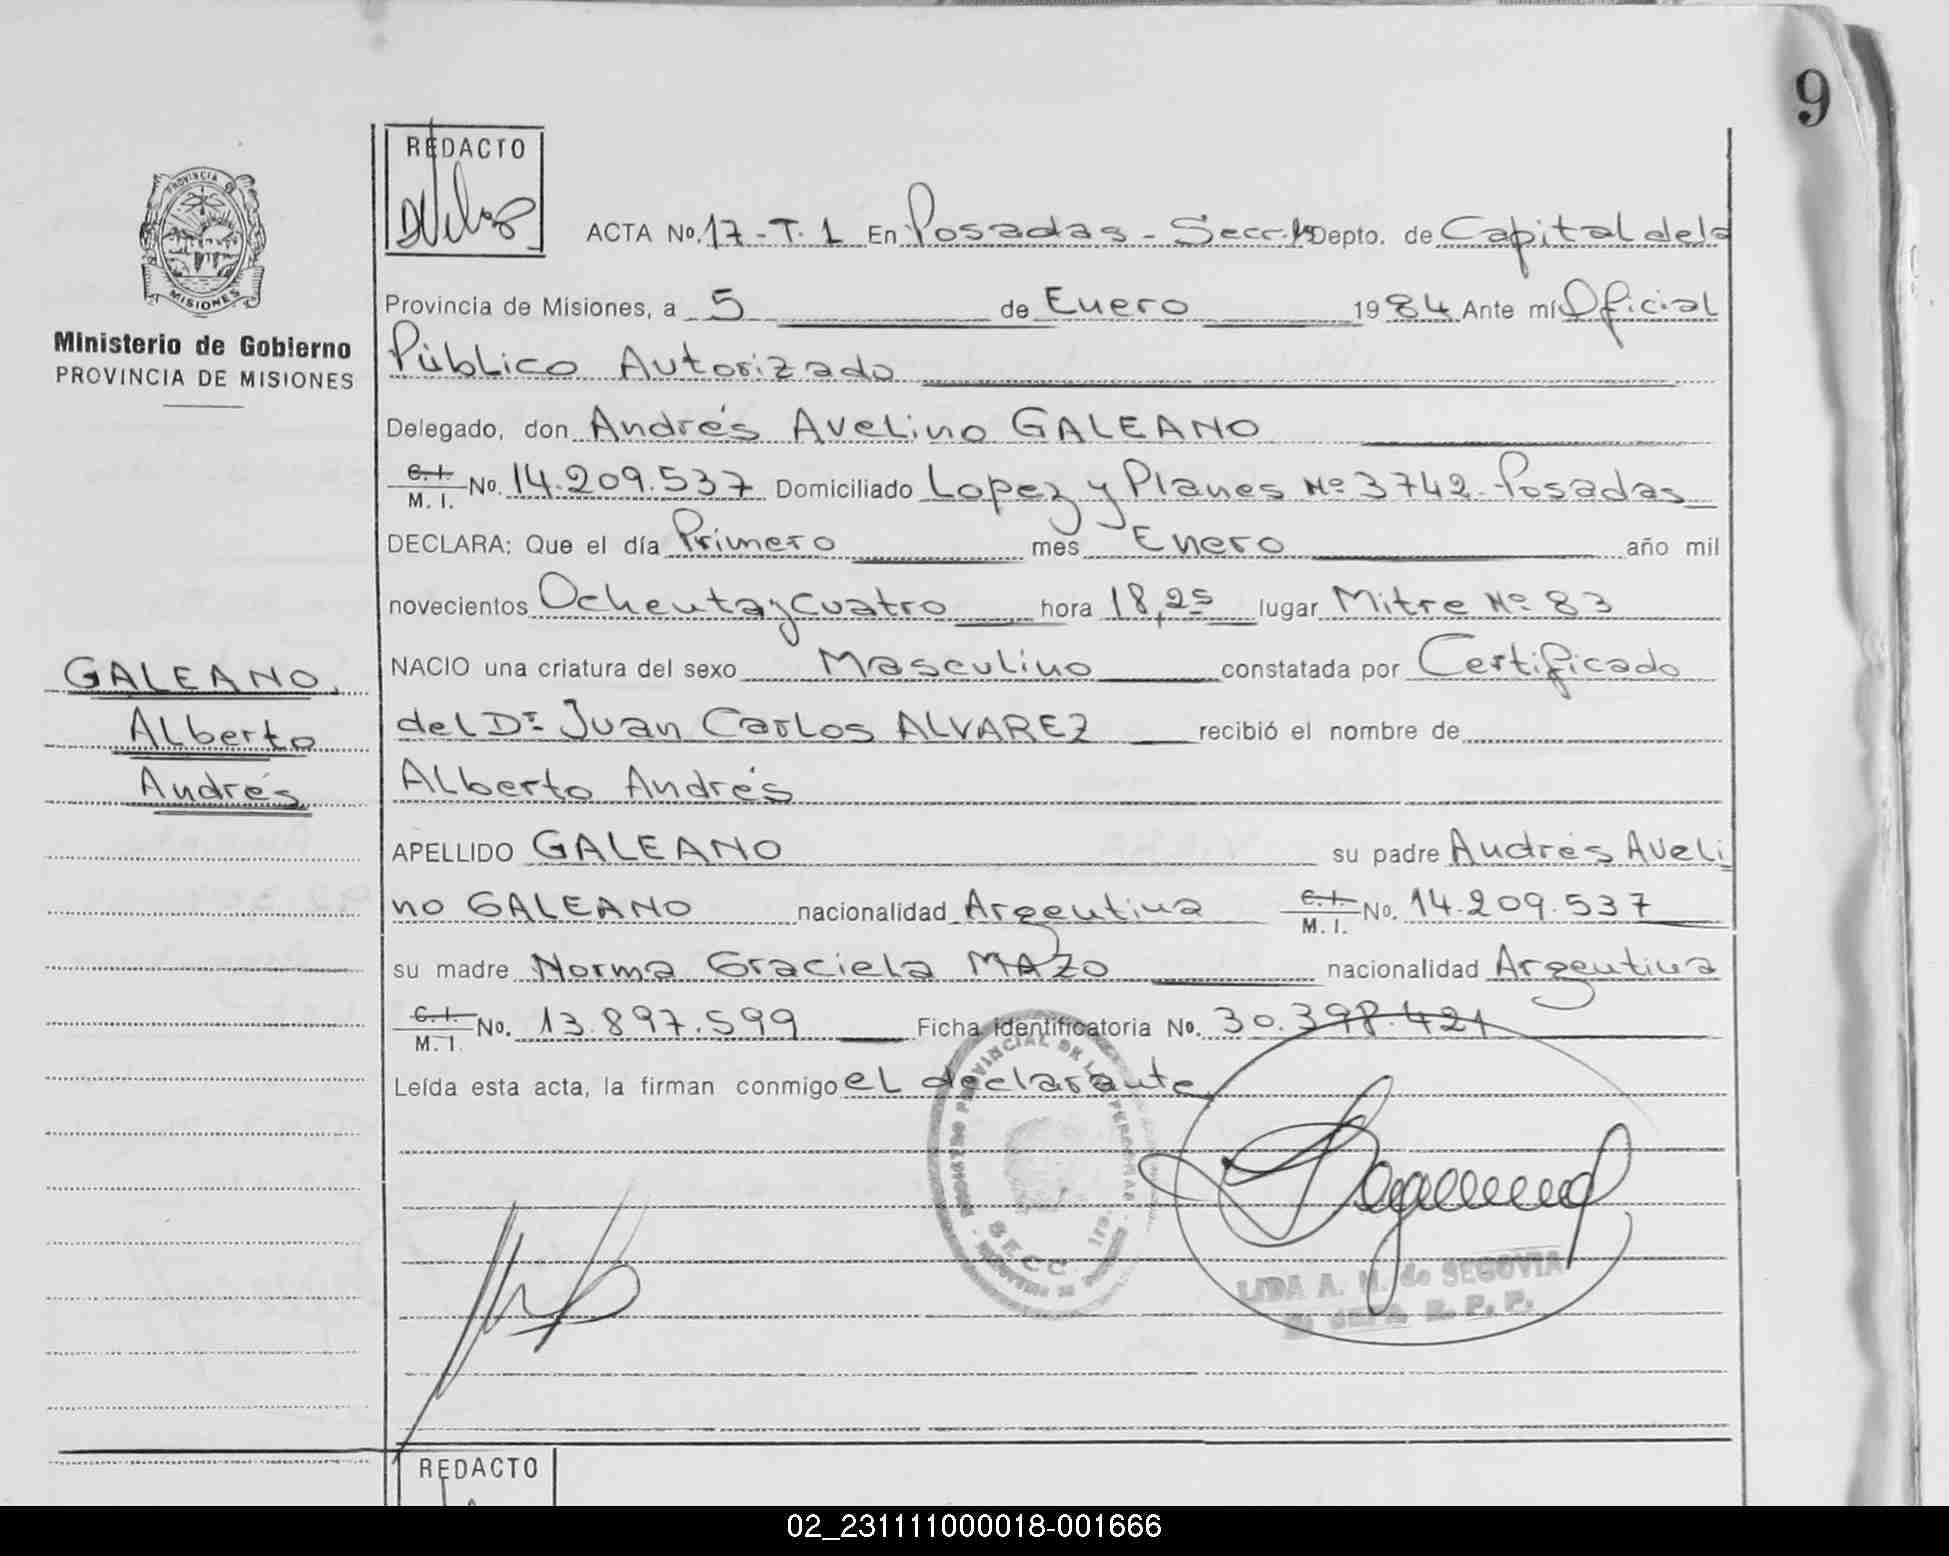 9
REDACTO
PROVINCIA DE
MISIONES
Ministerio de Gobierno
PROVINCIA DE MISIONES
ACTA No. 17-T.1 En Posadas - Secc. Depto. de Capital dela
Provincia de Misiones, a 5 de Enero 1984 Ante mí Oficial
Público Autorizado
Delegado, don Andrés Avelino GALEANO
C.I. M.I. No. 14.209.537 Domiciliado Lopez y Planes Nº 3742-Posadas
DECLARA: Que el día Primero mes Enero año mil
novecientos Ochenta y Cuatro hora 18,25 lugar Mitre Nº 83
NACIO una criatura del sexo Masculino constatada por Certificado
del Dr. Juan Carlos ALVAREZ recibió el nombre de
Alberto Andrés
APELLIDO GALEANO su padre Andrés Aveli
no GALEANO nacionalidad Argentina C.I. M.I. No. 14.209.537
su madre Norma Graciela MAZO nacionalidad Argentina
C.I. M.I. No. 13.897.599 Ficha identificatoria No. 30.398.421
Leída esta acta, la firman conmigo el declarante
GALEANO,
Alberto
Andrés
REGISTRO PROVINCIAL DE LAS PERSONAS
SECC. 1ra.
LIDA A. M. de SEGOVIA
R. P. P.
REDACTO
02_231111000018-001666